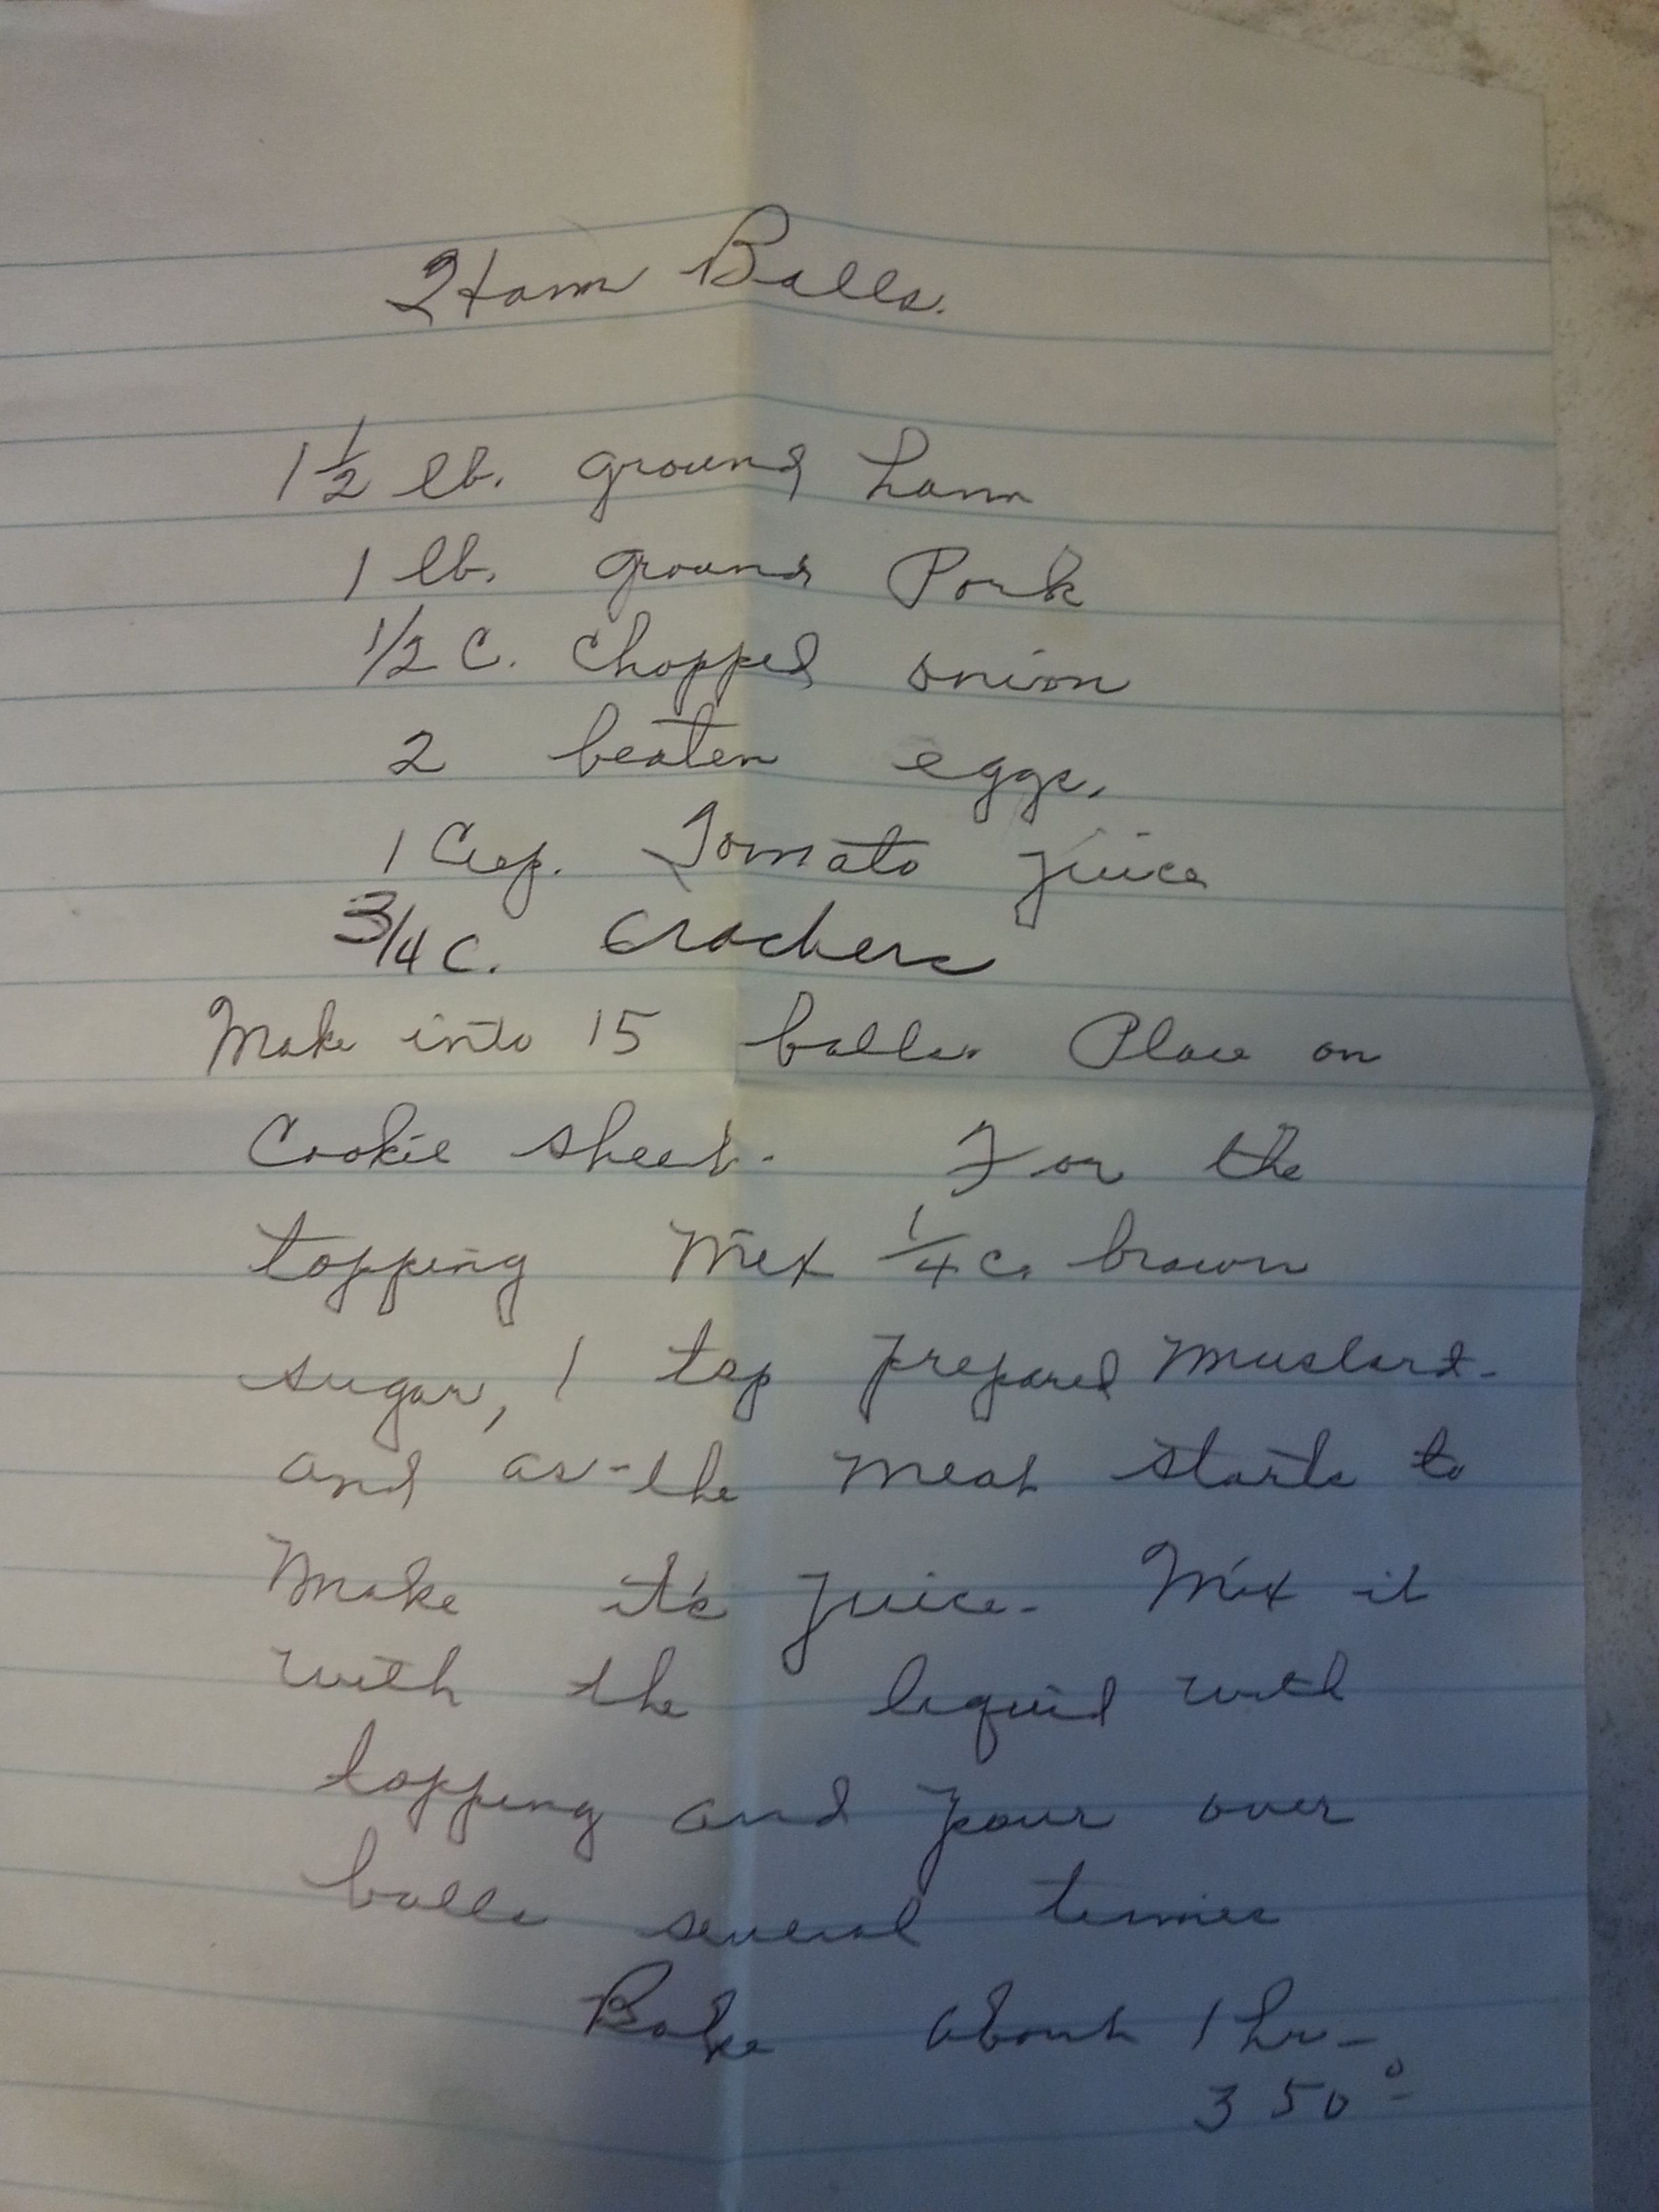 Ham Balls.
1 1/2 lb. ground ham
1 lb. ground Pork
1/2 C. Chopped onion
2 beaten eggs.
1 Cup. Tomato juice
3/4 C. Crackers
Make into 15 balls. Place on
Cookie sheet. For the
topping Mix 1/4 c. brown
sugar, 1 tsp prepared Mustard-
and as the Meat starts to
Make it's juice- Mix it
with the liquid with
topping and pour over
balls several times
Bake about 1 hr-
350°-